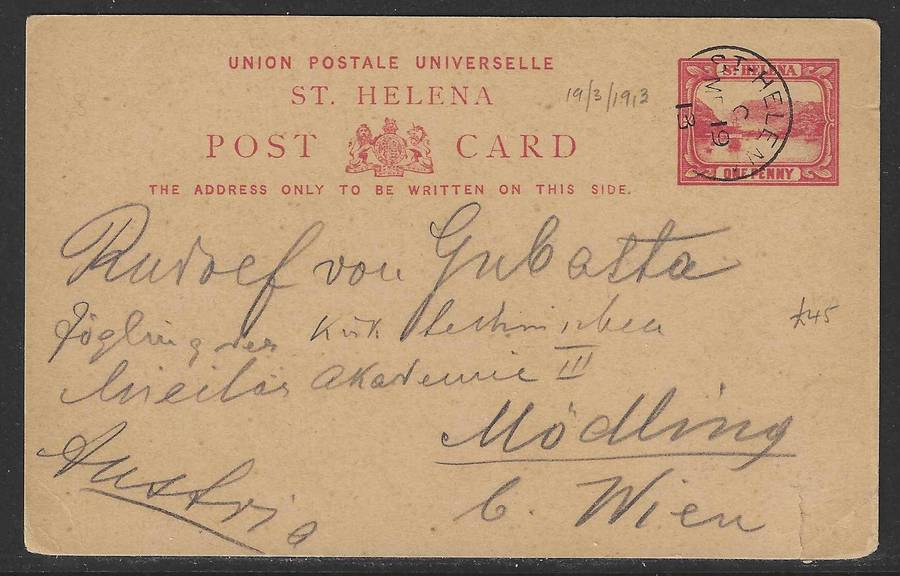 UNION POSTALE UNIVERSELLE
ST. HELENA
POST CARD
THE ADDRESS ONLY TO BE WRITTEN ON THIS SIDE.
19/3/1913
ST. HELENA
ONE PENNY
ST. HELEN
C
MR 19
13
Rudolf von Gubatta
Zögling der K.u.k. technischen
Militär Akademie III
£45
Mödling
b. Wien
Austria